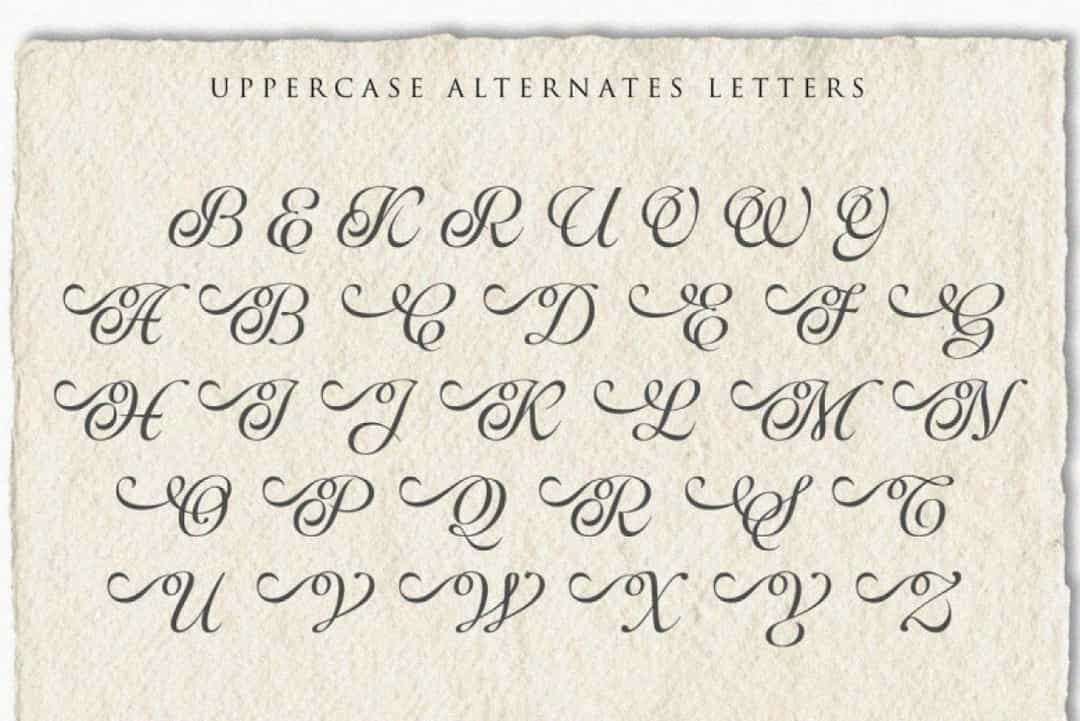 UPPERCASE ALTERNATES LETTERS
B E K R U V W Y
A B C D E F G
H I J K L M N
O P Q R S T
U V W X Y Z